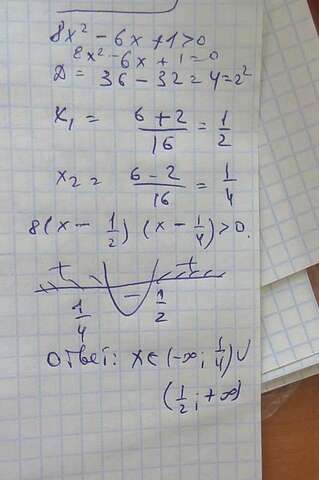 8x² - 6x + 1 > 0
8x² - 6x + 1 = 0
D = 36 - 32 = 4 = 2²
x₁ = (6 + 2)/16 = 1/2
x₂ = (6 - 2)/16 = 1/4
8(x - 1/2)(x - 1/4) > 0.
+ - +
1/4 1/2
Ответ: x ∈ (-∞; 1/4) ∪
(1/2; +∞)